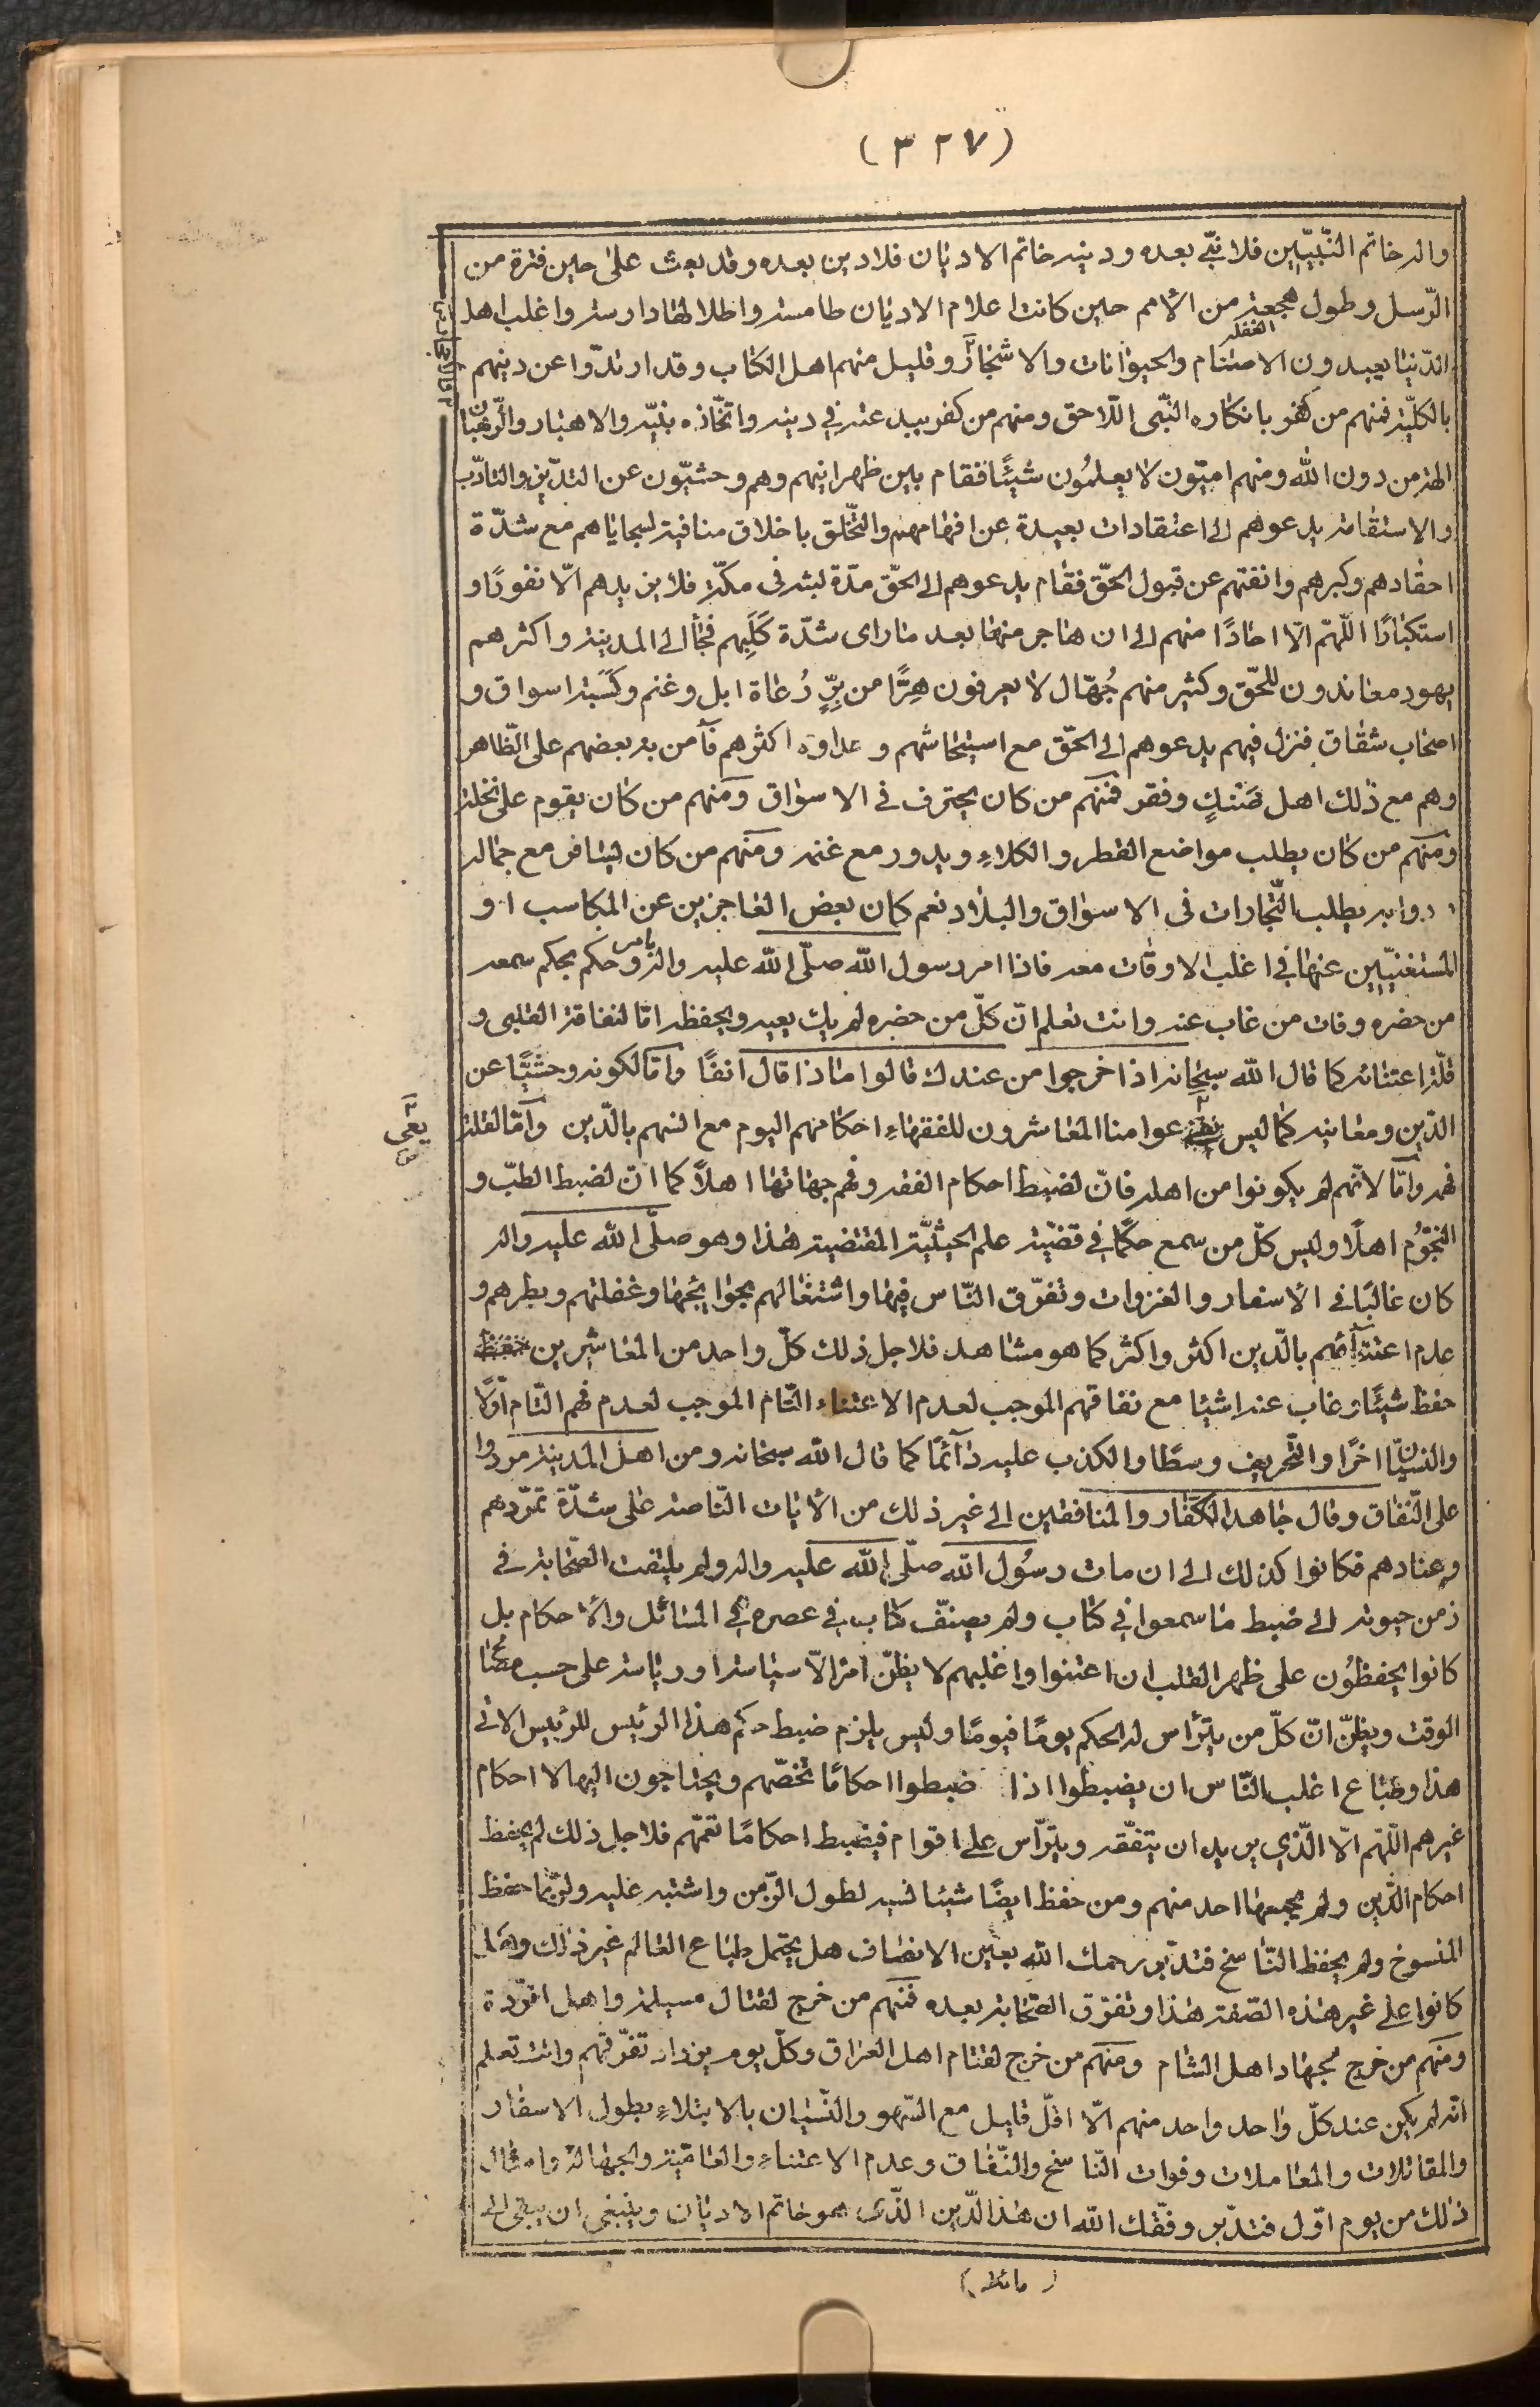 (٣٢٧)
واله خاتم النّبيّين فلا نبّى بعده ودينه خاتم الاديان فلادين بعده وقد بعث على حين فترة من
الرّسل وطول هجعة من الأمم حين كانت اعلام الاديان طامسة واطلالها دارسة واغلب اهل
الغفلة
الدّنيا يعبدون الاصنام والحيوانات والاشجار وقليل منهم اهل الكتاب وقد ارتدّوا عن دينهم
بالكليّة فمنهم من كفر بانكاره النبّى اللّاحق ومنهم من كفر ببدعته في دينه واتّخاذه نبيّه والاحبار والرّهبان
الهة من دون الله ومنهم اميّون لا يعلمُون شيئًا فقام بين ظهرانيهم وهم وحشيّون عن التديّن والتادّب
والاستقامة يدعوهم الى اعتقادات بعيدة عن افهامهم والتخّلق باخلاق منافية لسجاياهم مع شدّة
احقادهم وكبرهم وانفتهم عن قبول الحقّ فقام يدعوهم الى الحقّ مدّة لبثه فى مكّة فلا يزيدهم الّا نفورًا و
استكبارًا اللّهمّ الّا احادًا منهم الى ان هاجر منها بعد ما راى شدّة كَلَبِهم فجأ الى المدينة واكثرهم
يهود معاندون للحّق وكثير منهم جُهّال لا يعرفون هِرًّا من بِرٍّ رُعاة ابل وغنم وكَسَبة اسواق و
اصحاب شقاق فنزل فيهم يدعوهم الى الحّق مع استيحاشهم وعداوة اكثرهم فآمن به بعضهم على الظّاهر
وهم مع ذلك اهل ضَنْكٍ وفقر فمنهم من كان يحترف في الاسواق ومنهم من كان يقوم على نخلة
ومنهم من كان يطلب مواضع القطر والكلاءِ ويدور مع غنمه ومنهم من كان ليسافر مع جماله
ودوابه يطلب التّجارات فى الاسواق والبلاد نعم كان بعض العاجزين عن المكاسب او
المستغنيّين عنها في اغلب الاوقات معه فاذا امر رسول الله صلّى الله عليه واله بامر وحكم بحكم سمعه
من حضره وفات من غاب عنه وانت تعلم انّ كلّ من حضره لم يك يعيه ويحفظه امّا لنفاقة القلبى و
قلّة اعتنائه كما قال الله سبحانه اذا خرجوا من عندك قالوا ماذا قال انفًا وامّا لكونه وحشيًّا عن
الدّين ومعانيه كما ليس يعى عوامنا المعاشرون للفقهاءِ احكامهم اليوم مع انسهم بالدّين وامّا لقلة
فهمه وامّا لانّهم لم يكونوا من اهله فانّ لضبط احكام الفقه وفهم جهاتها اهلًا كما انّ لضبط الطبّ و
النجوُم اهلًا وليس كلّ من سمع حكمًا في قضيّة علم الحيثيّة المقتضية هذا وهو صلّى الله عليه واله
كان غالبًا في الاسفار والغزوات وتفرّق النّاس فيها واشتغالهم بحوايجها وغفلتهم وبطرهم و
عدم اعتنآئهم بالدّين اكثر واكثر كما هو مشاهد فلاجل ذلك كلّ واحد من المعاشرين
حفظ شيئًا وغاب عنه اشيا مع نفاقهم الموجب لعدم الاعتناء التّام الموجب لعدم فهم التّام اوّلًا
والنسيان اخرًا والتّحريف وسطًا والكذب عليه دآئمًا كما قال الله سبحانه ومن اهل المدينة مردوا
على النّفاق وقال جاهد الكفّار والمنافقين الى غير ذلك من الأيات النّاصة على شدّة تمرّدهم
وعنادهم فكانوا كذلك الى ان مات رسُول الله صلّى الله عليه واله ولم يلتفت الصّحابة في
زمن حيوته الى ضبط ما سمعوا في كتاب ولم يصنّف كتاب في عصره في المسائل والأحكام بل
كانوا يحفظوُن على ظهر القلب ان اعتنوا واغلبهم لا يظنّ امرا الّا سياسة او رياسة على حسب
الوقت ويظنّ انّ كلّ من يترأس له الحكم يومًا فيومًا وليس يلزم ضبط حكم هذا الرئيس للرئيس الاتي
هذا وطباع اغلب النّاس ان يضبطوا اذا ضبطوا احكامًا تخصّهم ويحتاجون اليها لا احكام
غيرهم اللّهم الّا الّذي يريد ان يتفّقه ويترّاس على اقوام فيضبط احكامًا تعمّهم فلاجل ذلك لم يحفظ
احكام الدّين ولم يجمعها احد منهم ومن حفظ ايضًا شيئا نسيه لطول الزّمن واشتبه عليه ولرّبما حفظ
المنسوخ ولم يحفظ النّاسخ فتدّبر رحمك الله بعين الانصاف هل يحتمل طباع العالم غير ذلك وهل
كانوا على غير هذه الصّفة هذا وتفرّق الصّحابة بعده فمنهم من خرج لقتال مسيلمة واهل الرّدة
ومنهم من خرج لجهاد اهل الشام ومنهم من خرج لقتام اهل العراق وكلّ يوم يزداد تفرّقهم وانت تعلم
انّه لم يكن عند كلّ واحد واحد منهم الّا اقلّ قليل مع السّهو والنّسيان بالابتلاءِ بطول الاسفار
والمقاتلات والمعاملات وفوات النّاسخ والنّفاق وعدم الاعتناءِ والعاميّة والجهالة وامثال
ذلك من يوم اوّل فتدّبر وفّقك الله ان هذا الدّين الذّى هو خاتم الاديان وينبغى ان يبقى الى
يعى